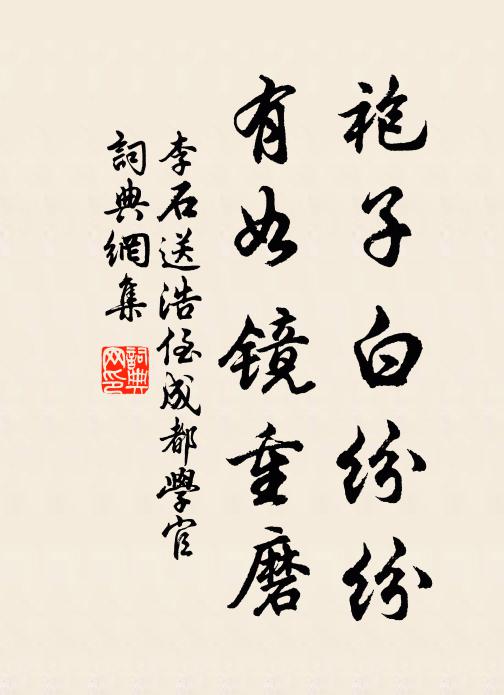 袍子白纷纷
有如镜重磨
李石送浩侄成都學官
詞典網集
詞典網印